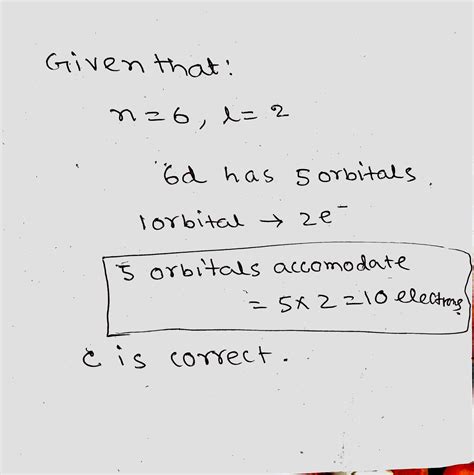 Given that:
n=6, l=2
6d has 5 orbitals.
1 orbital → 2e⁻
5 orbitals accomodate
= 5×2=10 electrons
c is correct.